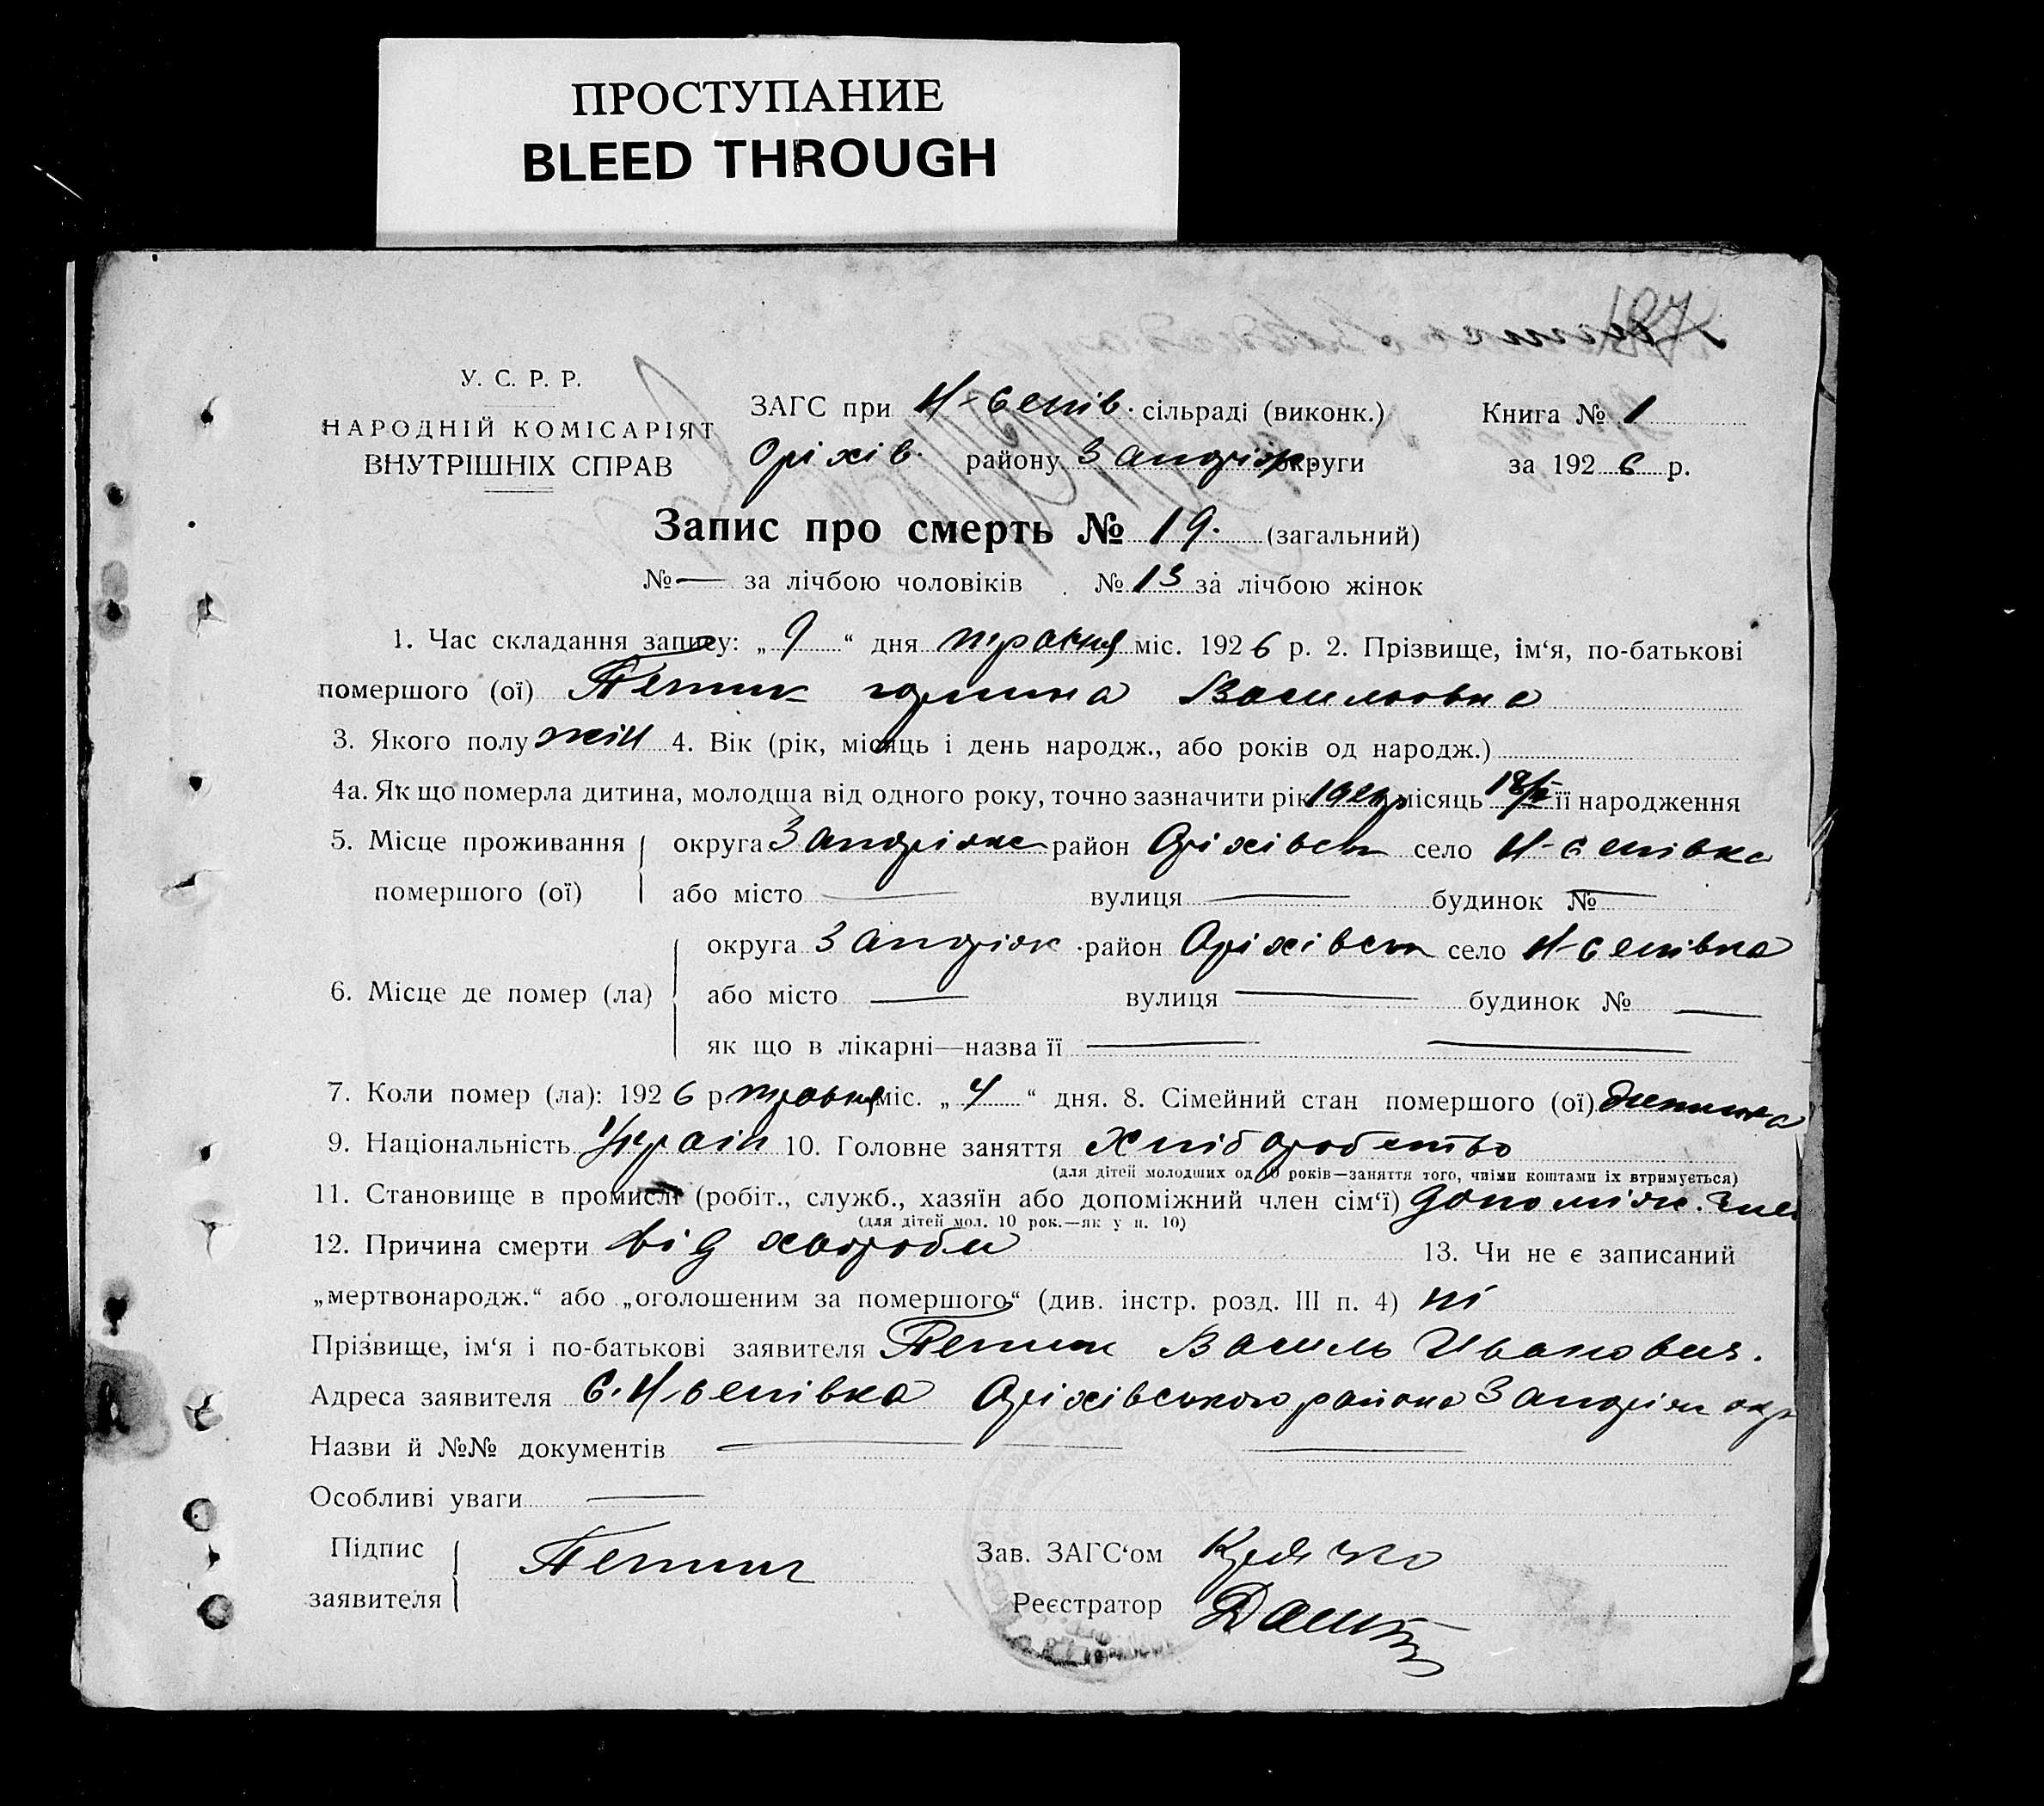 ПРОСТУПАНИЕ
BLEED THROUGH
187
У. С. Р. Р.
НАРОДНІЙ КОМІСАРІЯТ
ВНУТРІШНІХ СПРАВ
ЗАГС при сільраді (виконк.) Книга № 1
Оріхів. району Запоріж. округи за 1926 р.
Запис про смерть № 19. (загальний)
№ — за лічбою чоловіків . № 13 за лічбою жінок
1. Час складання запису: „ 9 “ дня травня міс. 1926 р. 2. Прізвище, ім‘я, по-батькові
помершого (ої) Васильовна
3. Якого полу жін 4. Вік (рік, місяць і день народж., або років од народж.)
4а. Як що померла дитина, молодша від одного року, точно зазначити рік місяць її народження
5. Місце проживання помершого (ої) округа Запоріжс район Оріхівськ село
або місто — вулиця — будинок № —
6. Місце де помер (ла) округа Запоріж район Оріхівськ село
або місто — вулиця — будинок № —
як що в лікарні—назва її — —
7. Коли помер (ла): 1926 р. травня міс. „ 4 “ дня. 8. Сімейний стан помершого (ої) дитина
9. Національність Україн 10. Головне заняття Хліборобство
(для дітей молодших од 10 років—заняття того, чиїми коштами їх втримується)
11. Становище в промислі (робіт., служб., хазяїн або допоміжний член сім‘ї) допоміж. член
(для дітей мол. 10 рок.—як у п. 10)
12. Причина смерти від хвороби 13. Чи не є записаний
„мертвонародж.“ або „оголошеним за помершого“ (див. інстр. розд. III п. 4) ні
Прізвище, ім‘я і по-батькові заявителя Василь Иванович.
Адреса заявителя с. Оріхівського района Запоріж окр
Назви й №№ документів — — —
Особливі уваги —
Підпис заявителя
Зав. ЗАГС‘ом
Реєстратор